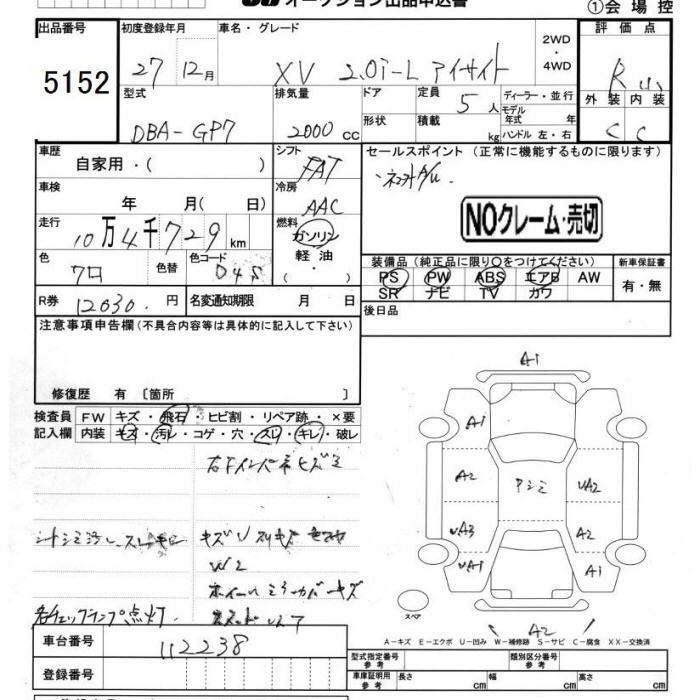 オークション出品申込書
①会場控
出品番号
5152
初度登録年月
27年 12月
車名・グレード
XV 2.0i-L アイサイト
2WD・4WD
評価点
R
外装 内装
C C
型式
DBA-GP7
排気量
2000 cc
ドア
形状
定員
5人
積載 kg
ディーラー・並行
モデル年式 年
ハンドル 左・右
車歴
自家用・( )
シフト
FAT
車検
年 月( 日)
冷房
AAC
走行
10万4千729 km
燃料
ガソリン
軽油
・
色
クロ
色替
色コード
D4S
R券
12030. 円
名変通知期限 月 日
セールスポイント (正常に機能するものに限ります)
NOクレーム・売切
装備品 (純正品に限り○をつけてください)
PS PW ABS エアB AW
SR ナビ TV カワ
新車保証書
有・無
後日品
注意事項申告欄 (不具合内容等は具体的に記入して下さい)
修復歴 有 〔箇所 〕
検査員記入欄
FW キズ・飛石・ヒビ割・リペア跡・×要
内装 キズ・汚レ・コゲ・穴・スリ・キレ・破レ
シートシミ汚レ、スレ
キズU スリキズ
W2
ホイール ミラーカバーキズ
各チェックランプ点灯
A1
A1
A2
UA3
UA1
Pシミ
UA2
A2
A1
A2
スペア
A-キズ E-エクボ U-凹み W-補修跡 S-サビ C-腐食 XX-交換済
車台番号
112238
登録番号
型式指定番号 参考
類別区分番号 参考
車庫証明用 参考
長さ cm 幅 cm 高さ cm